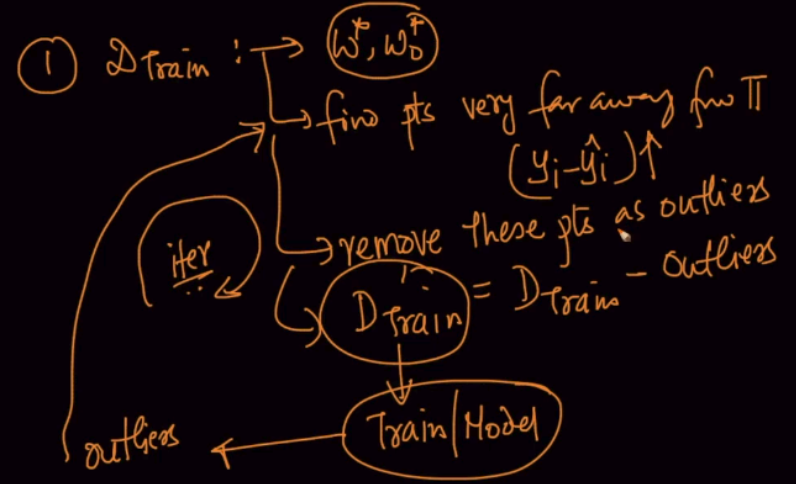 ① D Train : → W*, W₀*
→ find pts very far away from π
(yi - ŷi) ↑
→ remove these pts as outliers
D'Train = DTrain - outliers
iter
Train | Model
outliers